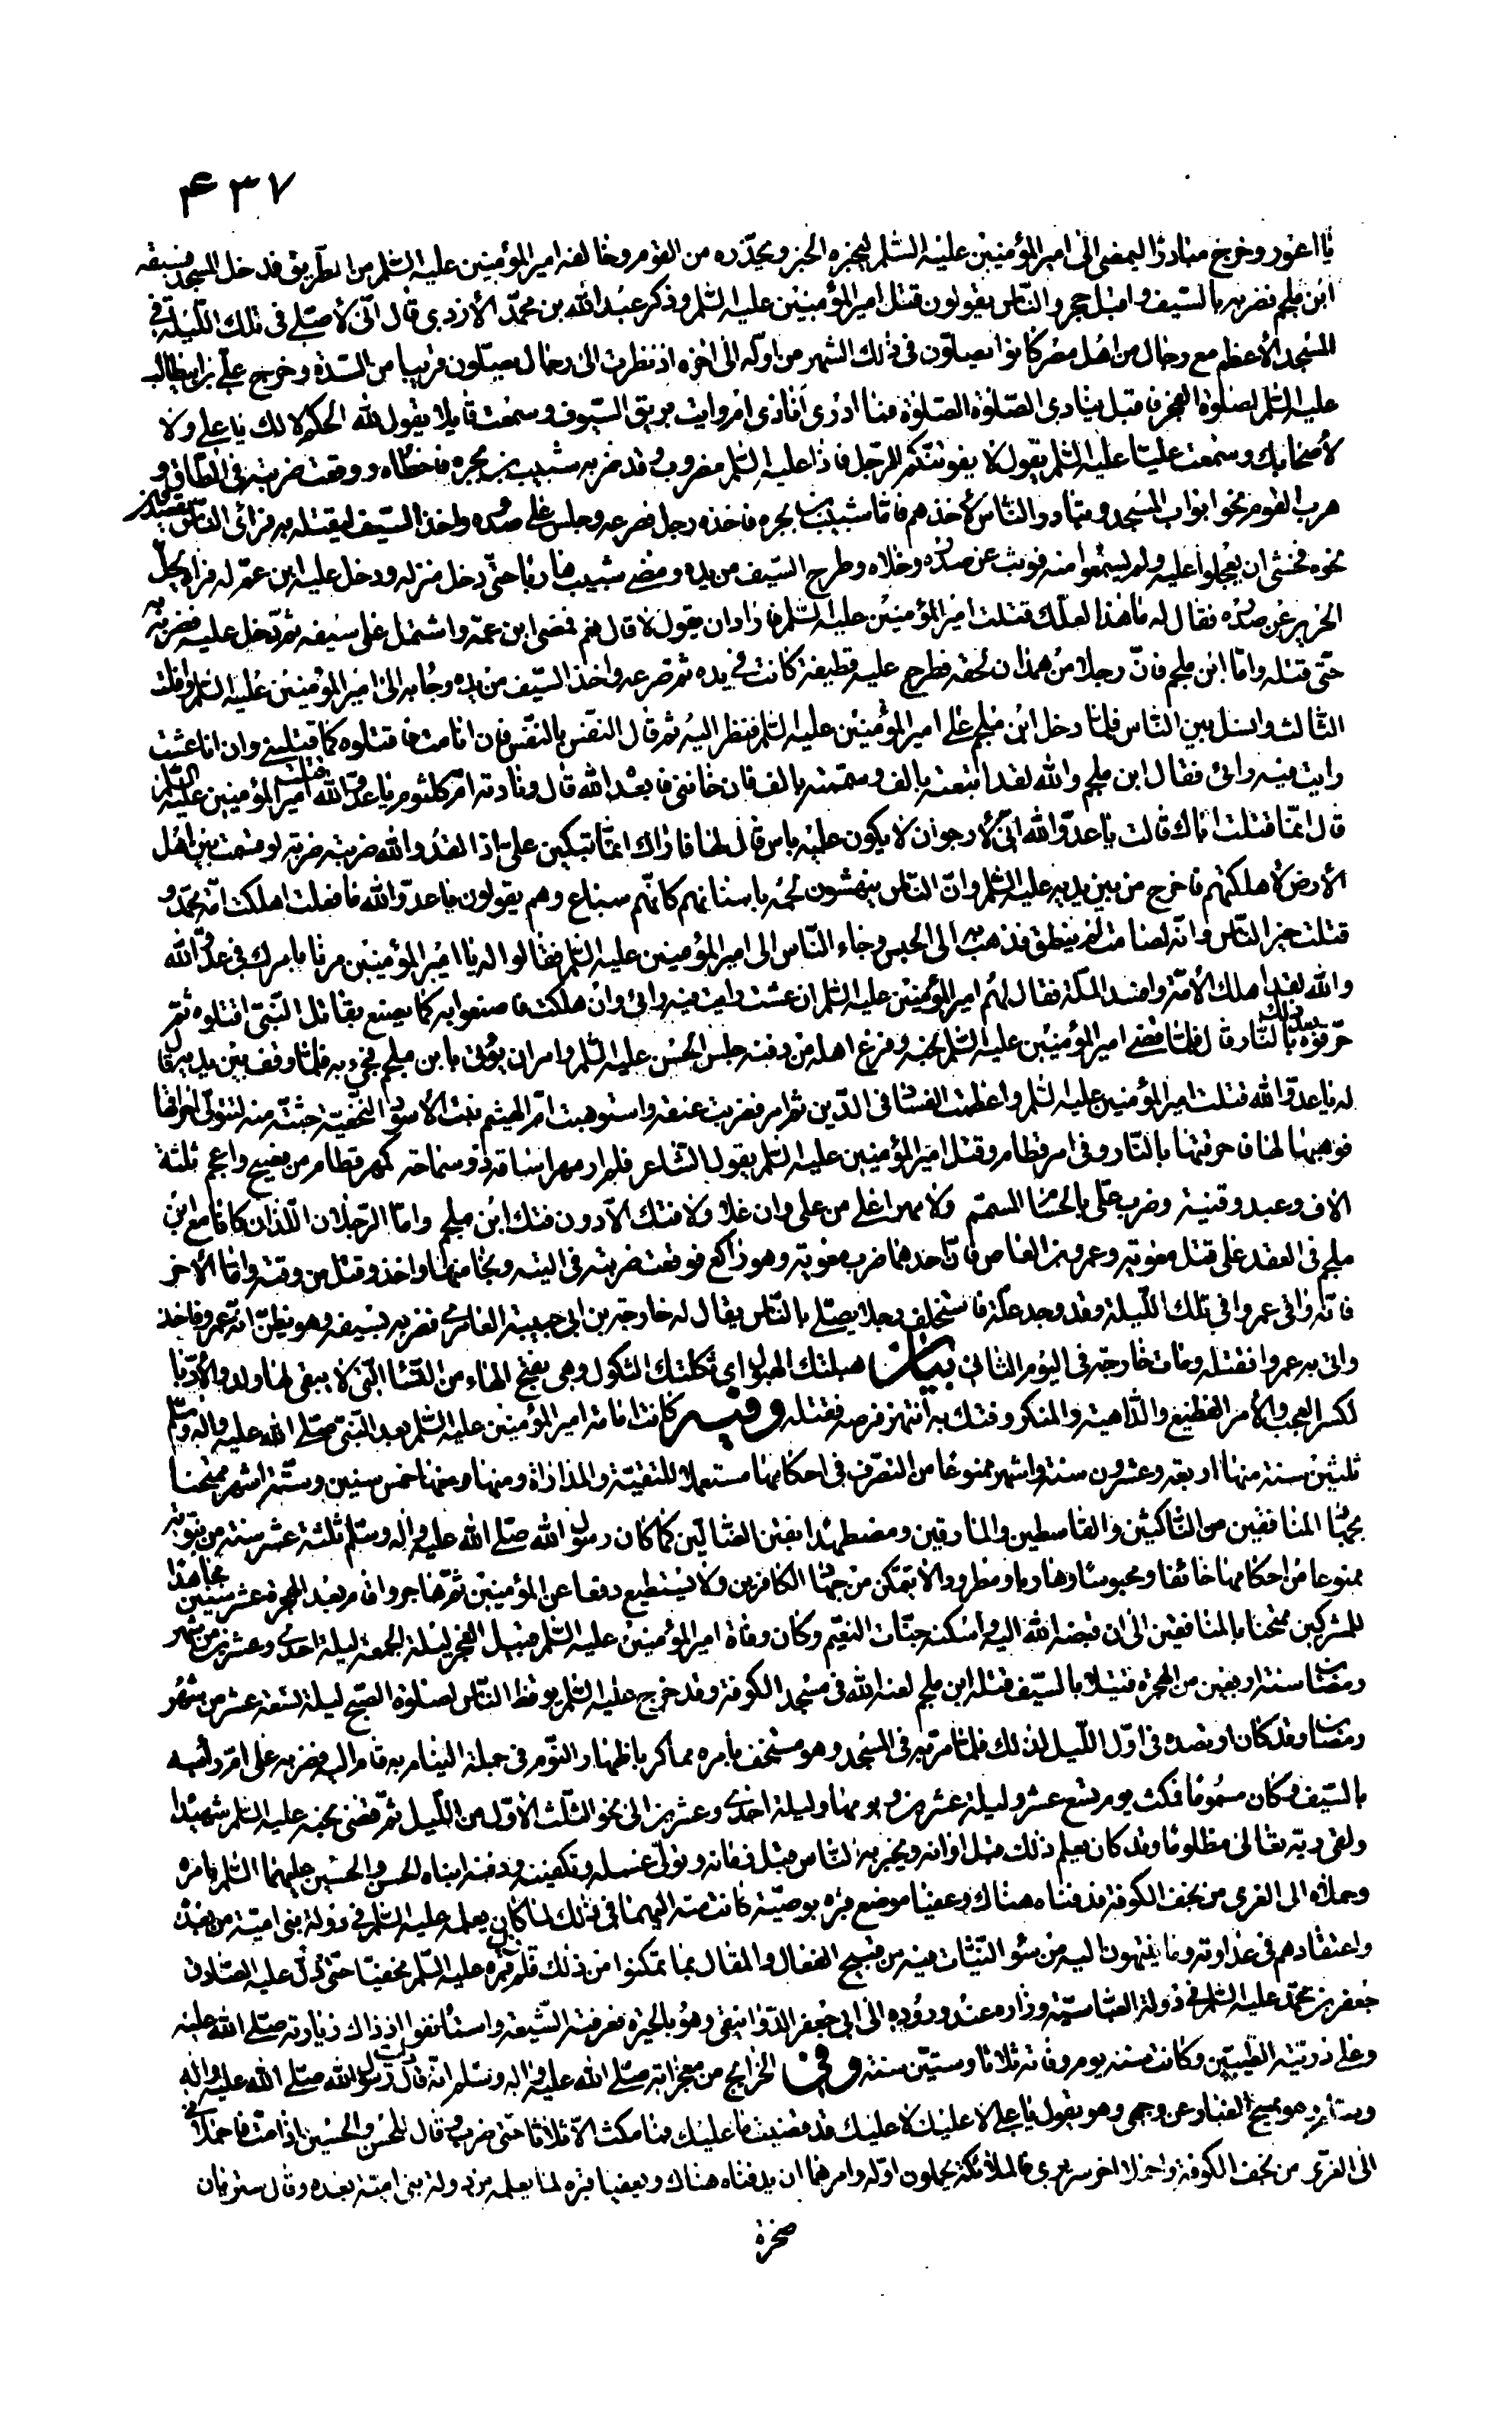 ۴۳۷
يا اعور وخرج مبادرا ليمضى الى امير المؤمنين عليه السلم ليخبره الخبر ويحذره من القوم وخالفه امير المؤمنين عليه السلم من الطريق فدخل المسجد فسبقه
ابن ملجم فضربه بالسيف واقبل حجر والناس يقولون قتل امير المؤمنين عليه السلم وذكر عبد الله بن محمد الأزدى قال انى لأصلى فى تلك الليلة فى
المسجد الأعظم مع رجال من اهل مصر كانوا يصلون فى ذلك الشهر من اوله الى اخره اذ نظرت الى رجال يصلون قريبا من السدة وخرج على بن ابيطالب
عليه السلم لصلوة الفجر فاقبل ينادى الصلوة الصلوة فما ادرى أنادى ام رايت بريق السيوف وسمعت قايلا يقول لله الحكم لا لك يا على ولا
لأصحابك وسمعت عليا عليه السلم يقول لا يفوتنكم الرجل فاذا عليه السلم مضروب وقد ضربه شبيب بن بجره فاخطاه ووقعت ضربته فى الطاق و
هرب القوم نحو ابواب المسجد وتبادر الناس لأخذهم فاما شبيب بن بجره فاخذه رجل فصرعه وجلس على صدره واخذ السيف ليقتله به فراى الناس يقصدون
نحوه فخشى ان يعجلوا عليه ولم يسمعوا منه فوثب عن صدره وخلاه وطرح السيف من يده ومضى شبيب هاربا حتى دخل منزله ودخل عليه ابن عم له فراه يحل
الحرير عن صدره فقال له ما هذا لعلك قتلت امير المؤمنين عليه السلم فاراد ان يقول لا قال نعم فمضى ابن عمه واشتمل على سيفه ثم دخل عليه فضربه به
حتى قتله واما ابن ملجم فان رجلا من همذان لحقه فطرح عليه قطيفة كانت فى يده ثم صرعه واخذ السيف من يده وجا به الى امير المؤمنين عليه السلم وافلت
الثالث وانسل بين الناس فلما دخل ابن ملجم على امير المؤمنين عليه السلم فنظر اليه ثم قال النفس بالنفس فان انا مت فاقتلوه كما قتلنى وان انا عشت
رايت فيه رائى فقال ابن ملجم والله لقد ابتعته بالف وسممته بالف فان خاننى فابعده الله قال ونادته ام كلثوم يا عدو الله قتلت امير المؤمنين عليه السلم
قال انما قتلت اباك قالت يا عدو الله انى لأرجو ان لا يكون عليه باس قال لها فاراك انما تبكين على اذا لقد والله ضربته ضربة لو قسمت بين اهل
الأرض لأهلكتهم فاخرج من بين يديه عليه السلم وان الناس ينهشون لحمه باسنانهم كانهم سباع وهم يقولون يا عدو الله ما فعلت اهلكت امة محمد و
قتلت خير الناس وانه لصامت لم ينطق فذهب به الى الحبس وجاء الناس الى امير المؤمنين عليه السلم فقالوا له يا امير المؤمنين مرنا بامرك فى عدو الله
والله لقد اهلك الأمة وافسد الملة فقال لهم امير المؤمنين عليه السلم ان عشت رايت فيه رائى وان هلكت فاصنعوا به كما يصنع بقاتل النبى اقتلوه ثم
حرقوه بعد ذلك بالنار قال فلما قضى امير المؤمنين عليه السلم نحبه وفرغ اهله من دفنه جلس الحسن عليه السلم وامر ان يؤتى بابن ملجم فجئ به فلما وقف بين يديه قال
له يا عدو الله قتلت امير المؤمنين عليه السلم واعظمت الفساد فى الدين ثم امر فضربت عنقه واستوهبت ام الهيثم بنت الأسود النخعية جثته منه لتتولى احراقها
فوهبها لها فاحرقتها بالنار وفى امر قطام وقتل امير المؤمنين عليه السلم يقول الشاعر فلم ار مهرا ساقه ذو سماحة كمهر قطام من فصيح واعجم ثلثة
الاف وعبد وقنية وضرب على بالحسام المسمم ولا مهر اغلى من على وان غلا ولا فتك الا دون فتك ابن ملجم واما الرجلان اللذان كانا مع ابن
ملجم فى العقد على قتل معوية وعمرو بن العاص فان احدهما ضرب معوية وهو راكع فوقعت ضربته فى اليته ونجا منها واخذ وقتل من وقته واما الأخر
فانه وافى عمروا فى تلك الليلة وقد وجد علة فاستخلف رجلا يصلى بالناس يقال له خارجة بن ابى حبيبة العامرى فضربه بسيفه وهو يظن انه عمرو فاخذ
واتى به عمروا فقتله ومات خارجة فى اليوم الثانى بيان هبلتك الهبول اى ثكلتك الثكول وهى بفتح الهاء من النساء التى لا يبقى لها ولد والأد بالكسر
لكسر العجب والأمر الفظيع والداهية والمنكر وفتك به انتهز فرصة فقتله وفيه كانت امامة امير المؤمنين عليه السلم بعد النبى صلى الله عليه واله وسلم
ثلثين سنة منها اربعة وعشرون سنة واشهر ممنوعا من التصرف فى احكامها مستعملا للتقية والمداراة ومنها خمس سنين وستة اشهر ممتحنا
بجهاد المنافقين من الناكثين والقاسطين والمارقين ومضطهدا بفتن الضالين كما كان رسول الله صلى الله عليه واله وسلم ثلثة عشر سنة من نبوته
ممنوعا من احكامها خائفا ومحبوسا وهاربا ومطرودا لا يتمكن من جهاد الكافرين ولا يستطيع دفعا عن المؤمنين ثم هاجر واقام بعد الهجرة عشر سنين مجاهدا
للمشركين ممتحنا بالمنافقين الى ان قبضه الله اليه واسكنه جنات النعيم وكان وفاة امير المؤمنين عليه السلم قبيل الفجر ليلة الجمعة ليلة احدى وعشرين من شهر
رمضان سنة اربعين من الهجرة قتيلا بالسيف قتله ابن ملجم لعنه الله فى مسجد الكوفة وقد خرج عليه السلم يوقظ الناس لصلوة الصبح ليلة تسعة عشر من شهر
رمضان وقد كان ارتصده فى اول الليل لذلك فلما مر به فى المسجد وهو مستخف بامره مماكر باظهار النوم فى جملة النيام به ثار اليه فضربه على ام راسه
بالسيف وكان مسموما فمكث يوم تسع عشر وليلة عشرين ويومها وليلة احدى وعشرين الى نحو الثلث الأول من الليل ثم قضى نحبه عليه السلم شهيدا
ولقى ربه تعالى مظلوما وقد كان يعلم ذلك قبل اوانه ويخبر به الناس قبل زمانه وتولى غسله وتكفينه ودفنه ابناه الحسن والحسين عليهما السلم بامره
وحملاه الى الغرى من نجف الكوفة فدفناه هناك وعفيا موضع قبره بوصية كانت منه اليهما فى ذلك لما كان يعلمه عليه السلم فى دولة بنى امية من بعده
واعتقادهم فى عداوته وما ينتهون اليه من سوء النيات فيه من قبيح الفعال والمقال بما تمكنوا من ذلك فلم يزل قبره عليه السلم مخفيا حتى دل عليه الصادق
جعفر بن محمد عليه السلم فى دولة العباسية وزاره عند وروده الى ابى جعفر الدوانيقى وهو بالحيرة فعرفته الشيعة واستانفوا اذ ذاك زيارته صلى الله عليه
وعلى ذريته الطيبين وكانت سنه يوم وفاته ثلاثا وستين سنة وفى الخرايج من معجزاته صلى الله عليه واله وسلم انه قال رايت رسول الله صلى الله عليه واله
وهو يمسح الغبار عن وجهى وهو يقول يا على لا عليك لا عليك قد قضيت ما عليك فما مكث الا ثلاثا حتى ضرب وقال للحسن والحسين اذا مت فاحملانى
الى الغرى من نجف الكوفة واحملا اخر سريرى فالملائكة يحملون اوله وامرهما ان يدفناه هناك ويعفيا قبره لما يعلمه من دولة بنى امية بعده وقال ستريان
صخرة